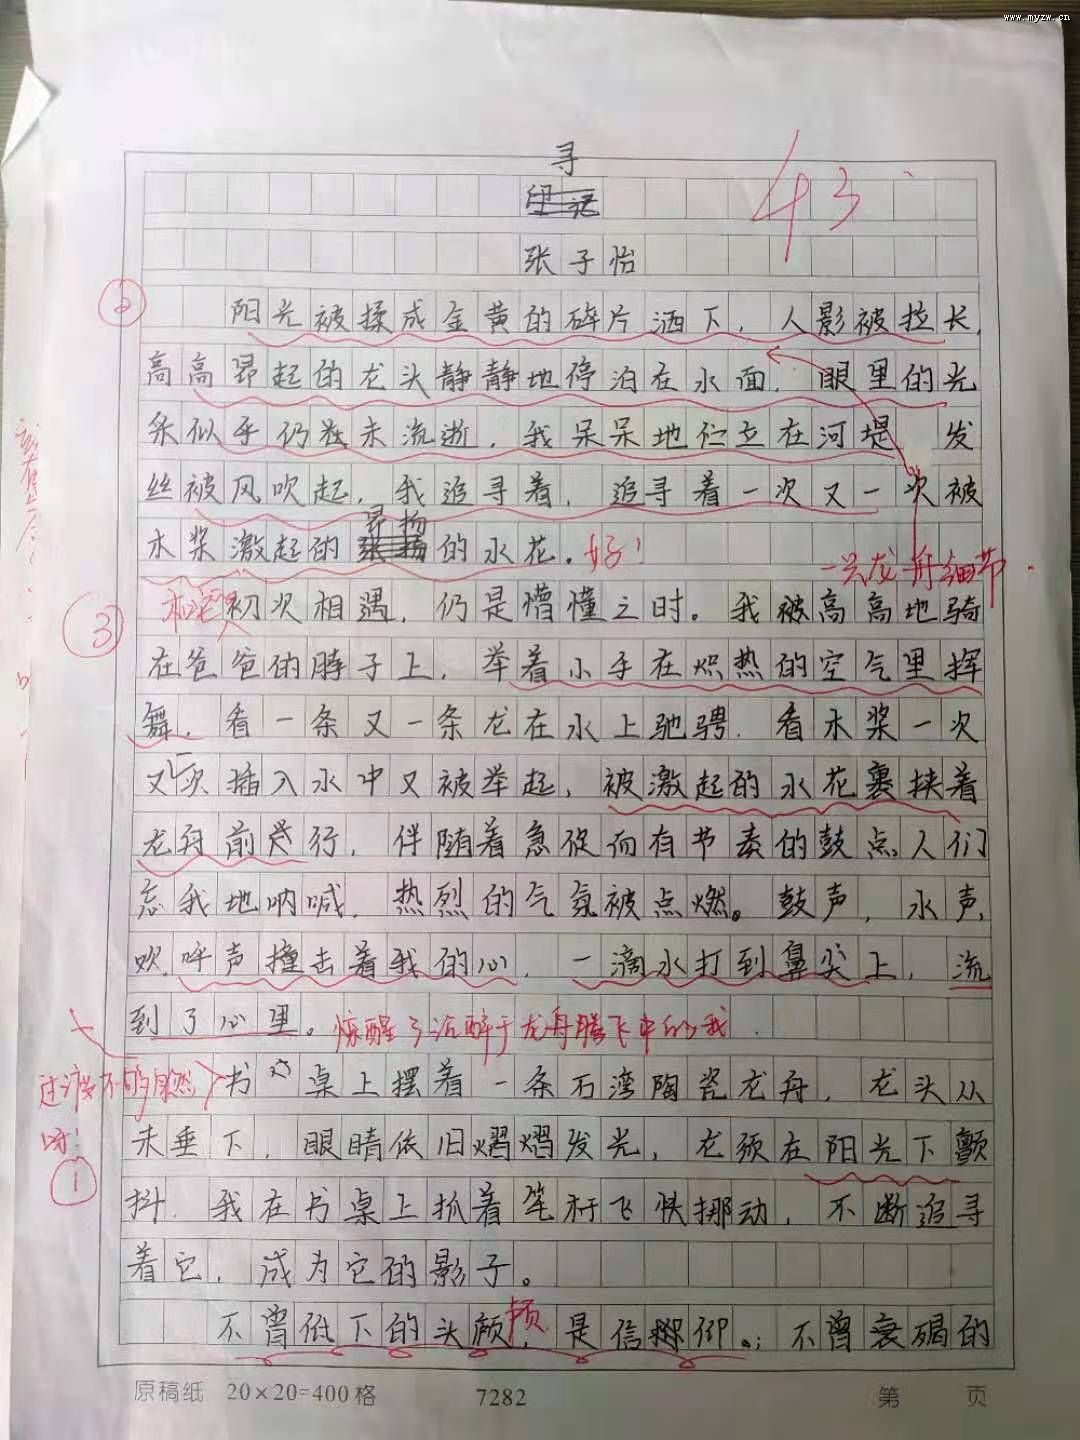 www.myzw.cn
寻
43
张子怡
② 阳光被揉成金黄的碎片洒下，人影被拉长，
高高昂起的龙头静静地停泊在水面，眼里的光
条似乎仍然未流逝，我呆呆地伫立在河堤 发
丝被风吹起，我追寻着，追寻着一次又一次被
昂扬
木桨激起的的水花。好！
一些龙舟细节.
③ 初次相遇，仍是懵懂之时。我被高高地骑
在爸爸的脖子上，举着小手在炽热的空气里挥
舞，看一条又一条龙在水上驰骋，看木桨一次
又一次插入水中又被举起，被激起的水花裹挟着
龙舟前行，伴随着急促而有节奏的鼓点人们
忘我地呐喊，热烈的气氛被点燃。鼓声，水声，
欢呼声撞击着我的心，一滴水打到鼻尖上，流
到了心里。惊醒了沉醉于龙舟腾飞中的我
过渡不够自然 书桌上摆着一条石湾陶瓷龙舟，龙头从
呀！ 未垂下，眼睛依旧熠熠发光，龙须在阳光下颤
① 抖，我在书桌上抓着笔杆飞快挪动，不断追寻
着它，成为它的影子。
不曾低下的头颅，是信仰。；不曾衰竭的
原稿纸 20×20=400格 7282 第 页